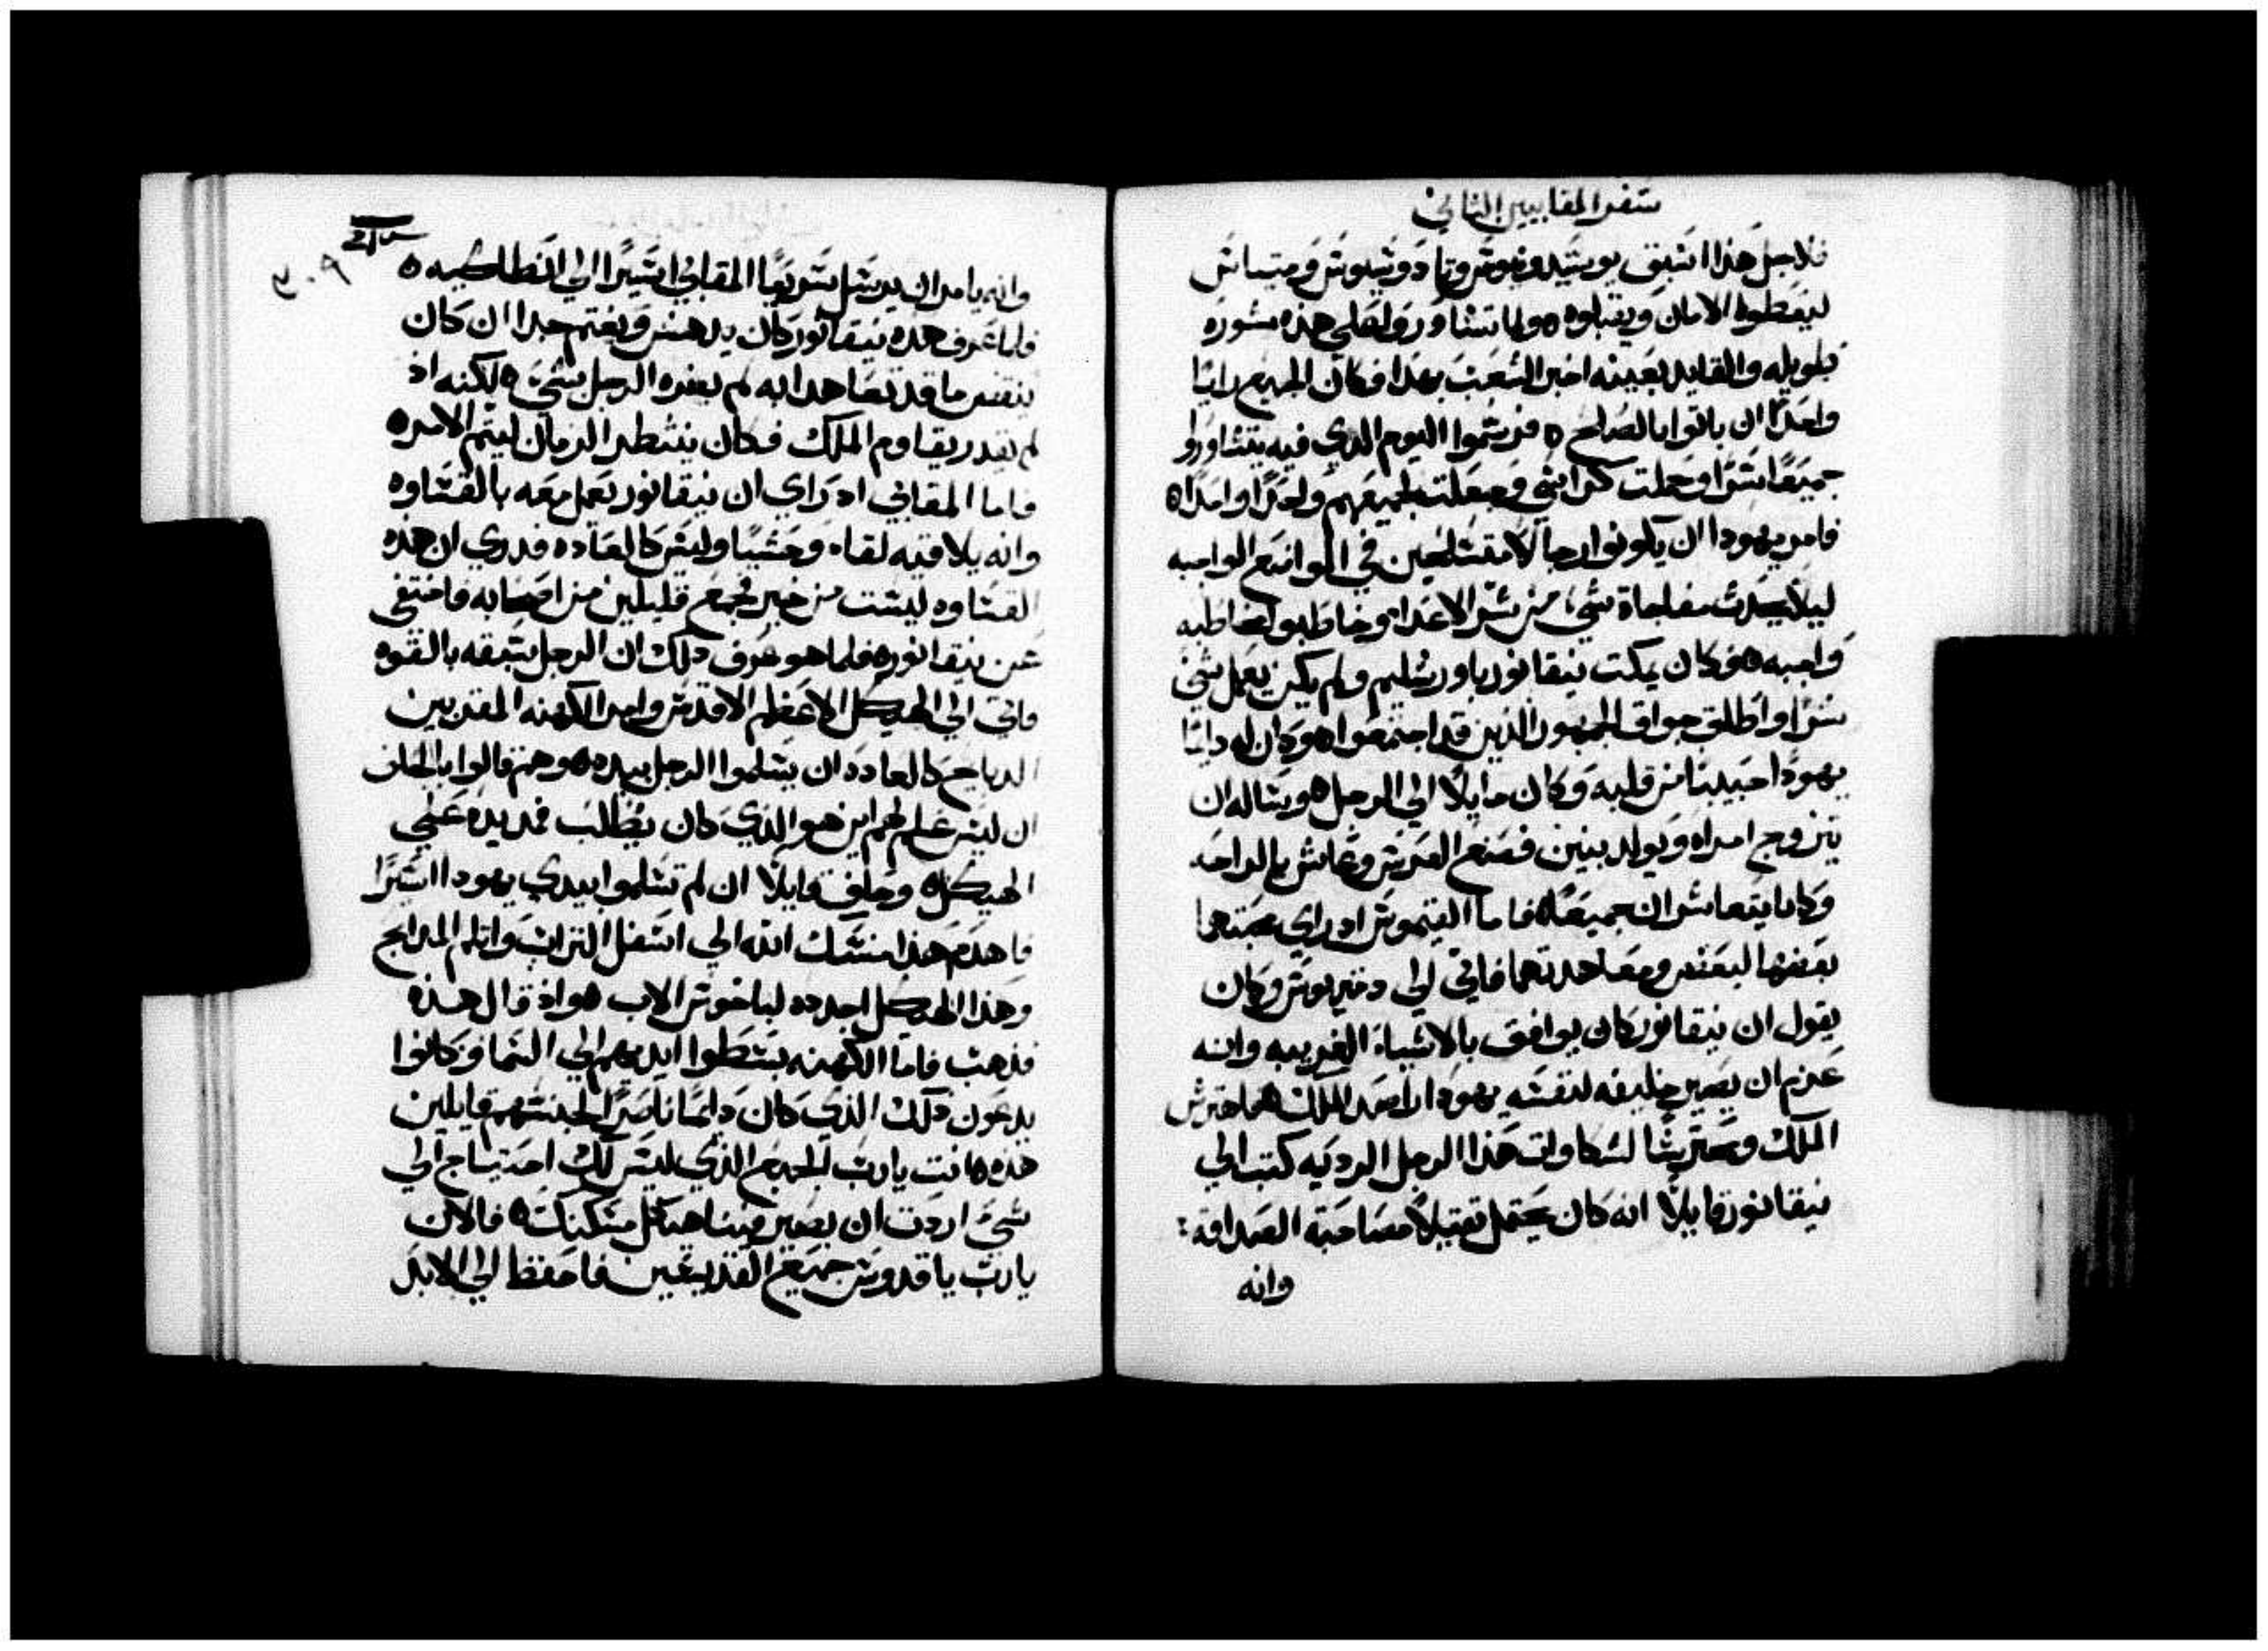 سفر المقابيين الثاني
فلاجل هذا اسبق بوسيدونيوس وتادوتيوس ومتياس
ليعطوا الامان ويقبلوه ولما تشاوروا على هذه مشوره
طويله والقايد بعينه اخبر الشعب بهذا فكان لجميع رايا
واحدًا ان ياتوا بالصلح فرسموا اليوم الذي فيه يتشاوروا
جميعًا سرًا وحملت كراسي وجعلت لجميعهم واحدًا واحدًا
فامر يهودا ان يكونوا رجالا متسلحين في المواضع الواجبه
ليلا يحدث مفاجاة شي من شر الاعدا وخاطبوا مخاطبه
واجبه وكان يمكت نيقانور باورشليم ولم يكن يعمل شي
شرا واطلق جواق الجمهور الذين قد اجتمعوا وكان له دايما
يهودا حبيبا من قلبه وكان مايلًا الى الرجل وسًاله ان
يتزوج امراه ويولد بنين فصنع العرس وعاش بالراحه
وكانا يتعاشران جميعًا فاما القيموس اد راي محبتهما
بعضهما لبعض ومعاهدتهما فاتى الى دمتريوس وكان
يقول ان نيقانور كان يوافق بالاشياء الغريبه وانه
عزم ان يصير خليفه لنفسه يهودا راصد الملك فاحترش
الملك و لشكاوات هذا الرجل الرديه كتب الى
نيقانور قايلًا انه كان يحتمل تقيلًا مصاحبة الصداقه
وانه
٣٠٩
وانه يامر ان يرسل سريعًا المقابي اسيرًا الى انطاكيه
فلما عرف هذه نيقانور كان يدهش ويغتم جدا ان كان
ينقض ما قد تعاهدا به لم يضره الرجل بشي لكنه اذ
لم يقدر يقاوم الملك فكان ينتظر الزمان ليتم الامر
فاما المقابي اد راي ان نيقانور يعمل معه بالقساوه
وانه يلاقيه لقاء وحشيًا وليس كالعاده فدري ان هذه
القساوه ليست من خير فجمع قليلين من اصحابه فاختفى
عن نيقانور فلما هو عرف دلك ان الرجل سبقه بالقوه
فاتى الى الهيكل الاعظم الاقدس وامر الكهنه المقربين
الدبايح كالعاده ان يسلموا الرجل بيده وهم قالوا بالحلف
ان ليس علم لهم اين هو الذي كان يطلب فمد يده على
الهيكل وحلف قايلًا ان لم تسلموا بيدي يهودا اسيرًا
فاهدم هذا منسك الله الى اسفل التراب واتلم المدابح
وهذا الهيكل اجدده لباخوس الاب هو اذ قال هذه
فذهب فاما الكهنه بسطوا ايديهم الى السما وكانوا
يدعون ذلك الذي كان دايمًا ناصرًا لجنسهم قايلين
هذه انت يارب الجميع الذي ليس لك احتياج الى
شي اردت ان يصير فينا هيكل مسكنك فالان
يارب ياقدوس جميع القديسين فاحفظ الى الابد